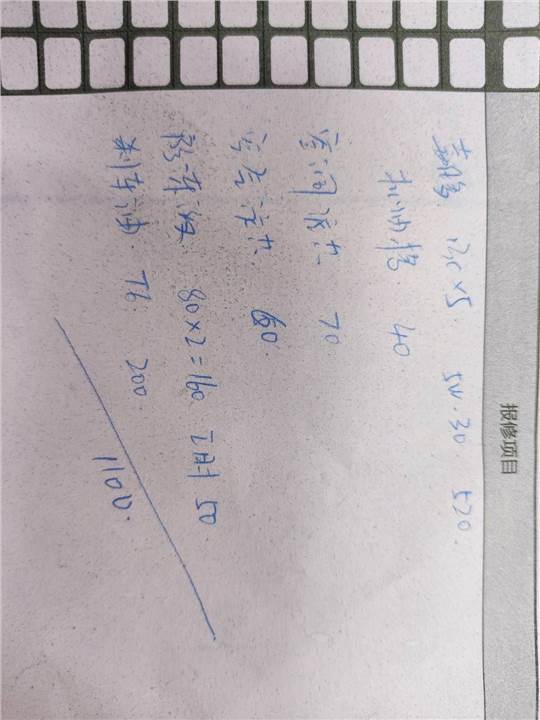 报修项目
×5. SN.30 520.
机油格 40
空调滤芯 70
空气滤芯 60.
防冻液 80×2=160 工时 50.
刹车油 200.
1100.